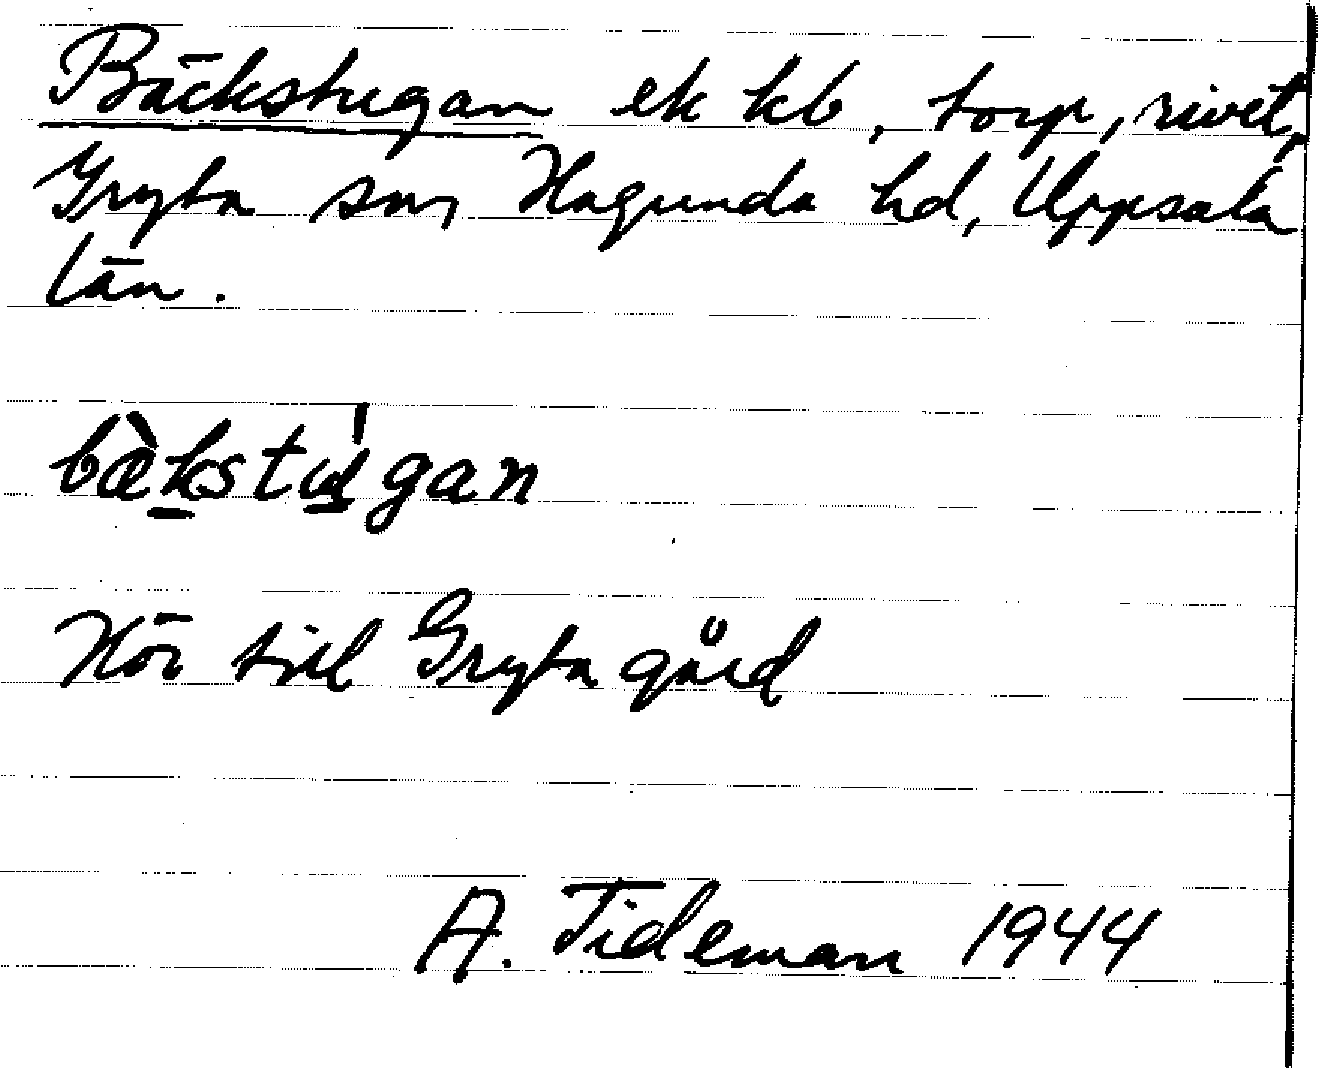 Bäckstugan ek kb, torp, rivet,
Gryta sn, Hagunda hd, Uppsala
län.
bæ̀kstu̠gan
Hör till Gryta gård
A. Tideman 1944